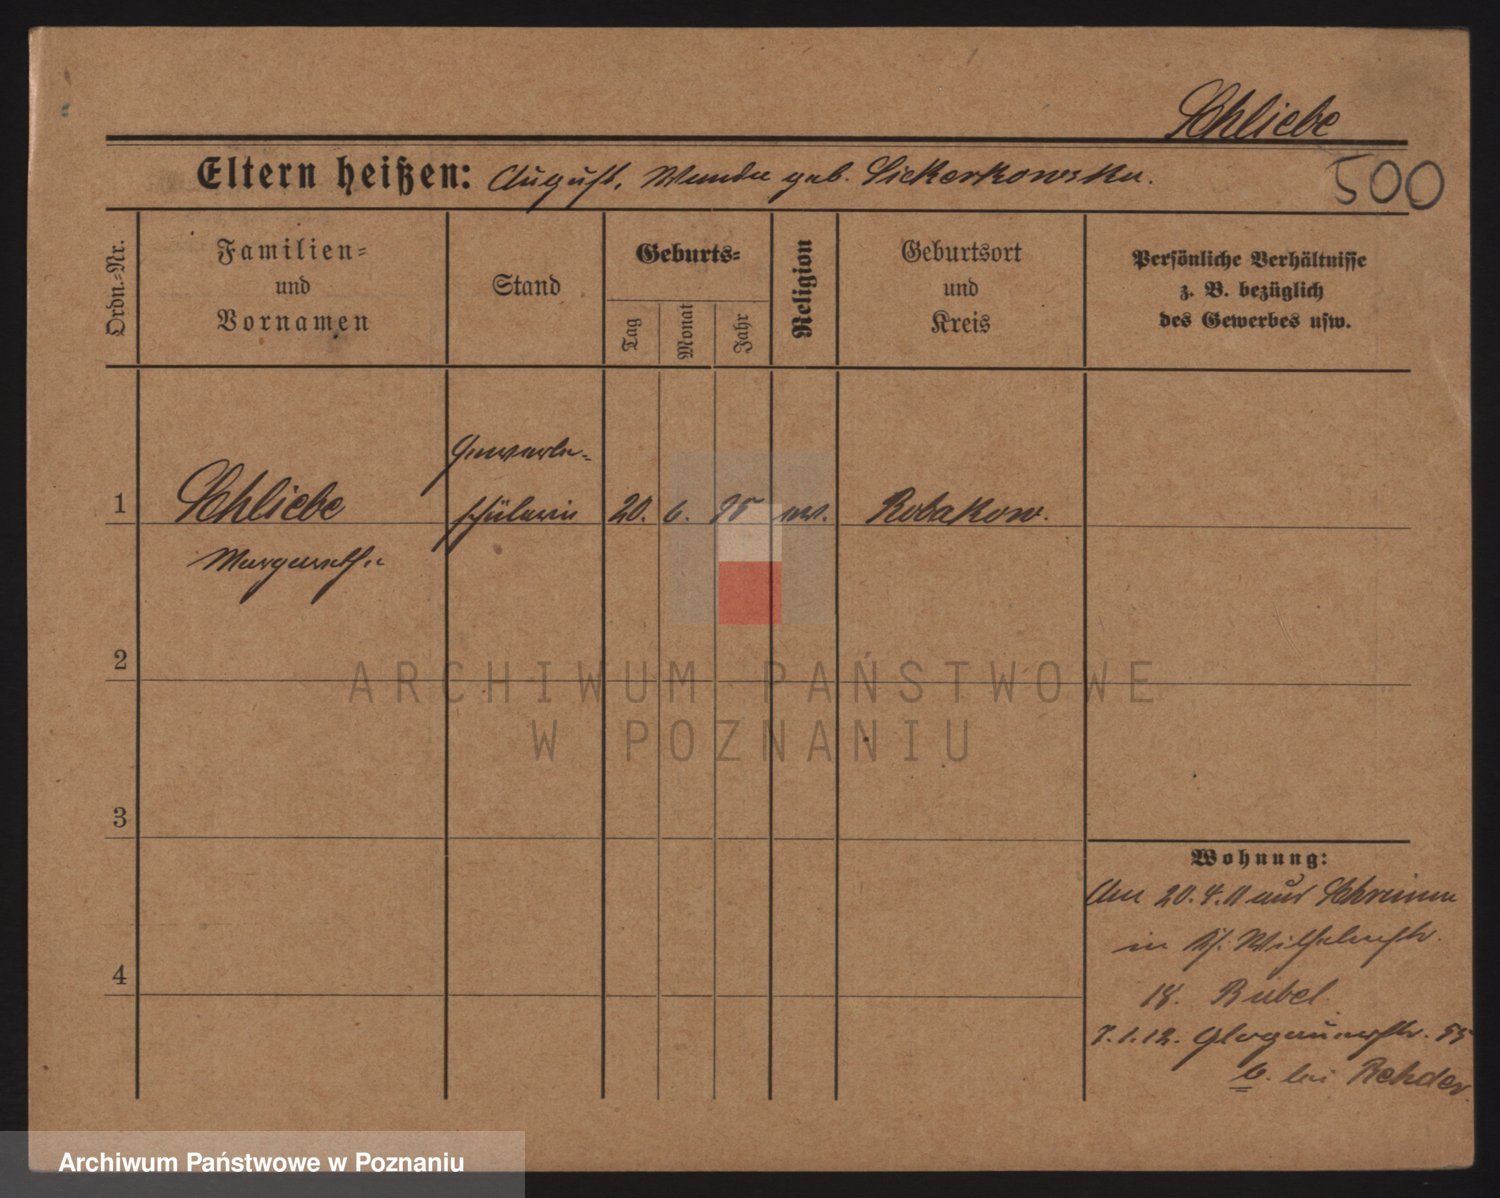 Schliebe
Eltern heißen: August, Wanda geb. Sickorkowska.
500
Ordn.-Nr.
Familien-
und
Vornamen
Stand
Geburts-
Tag
Monat
Jahr
Religion
Geburtsort
und
Kreis
Persönliche Verhältnisse
z. B. bezüglich
des Gewerbes usw.
Gewerbe-
1 Schliebe schülerin 20. 6. 95 ev. Robakow.
Margarethe
2
3
4
ARCHIWUM PAŃSTWOWE
W POZNANIU
Wohnung:
Am 20. 4. 11 aus Schrimm
in Wilhelmstr.
18.
7. 1. 12. Glogauerstr. 55
b. bei Rehder
Archiwum Państwowe w Poznaniu